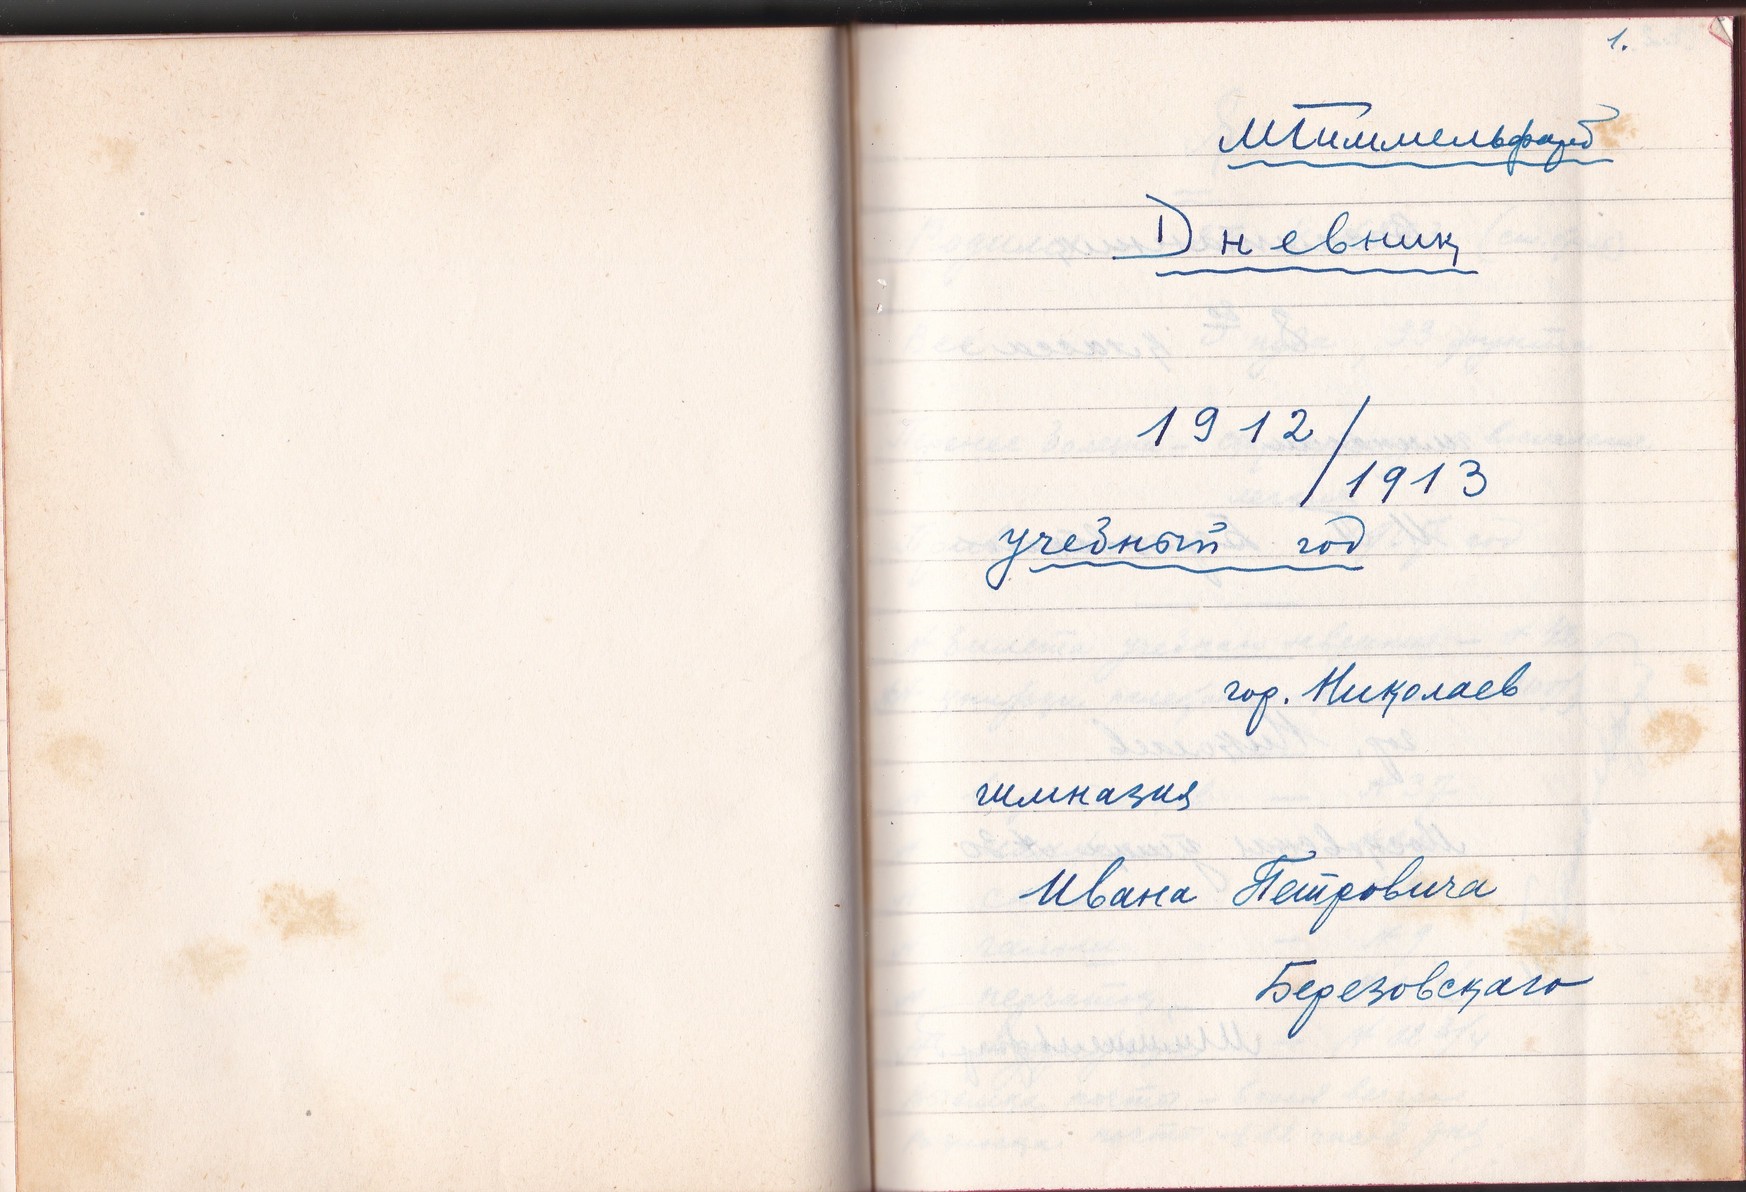 1.
МГиммельфарб
Дневник
1912/
/1913
учебный год
гор. Николаев
гимназия
Ивана Петровича
Березовскаго